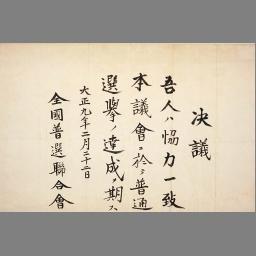 決議
吾人ハ恊力一致
本議會ニ於テ普通
選擧ノ達成ヲ期ス
大正九年二月二十二日
全國普選聯合會